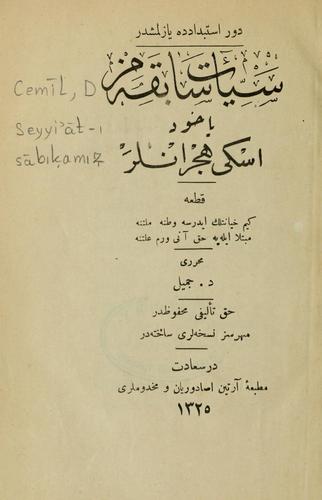 دور استبدادده یازلمشدر
سیئات سابقه مز
Cemil, D
یاخود
Seyyi'āt-ı
sābıḳamız
اسكی هجرانلر
قطعه
كیم خیانتلك ایدرسه وطنه ملتنه
مبتلا ایلیه حق آنی ورم علتنه
محرری
د . جمیل
حق تألیفی محفوظدر
مهرسز نسخه‌لری ساخته‌در
درسعادت
مطبعهٔ آرتین آصادوریان و مخدوملری
١٣٢٥